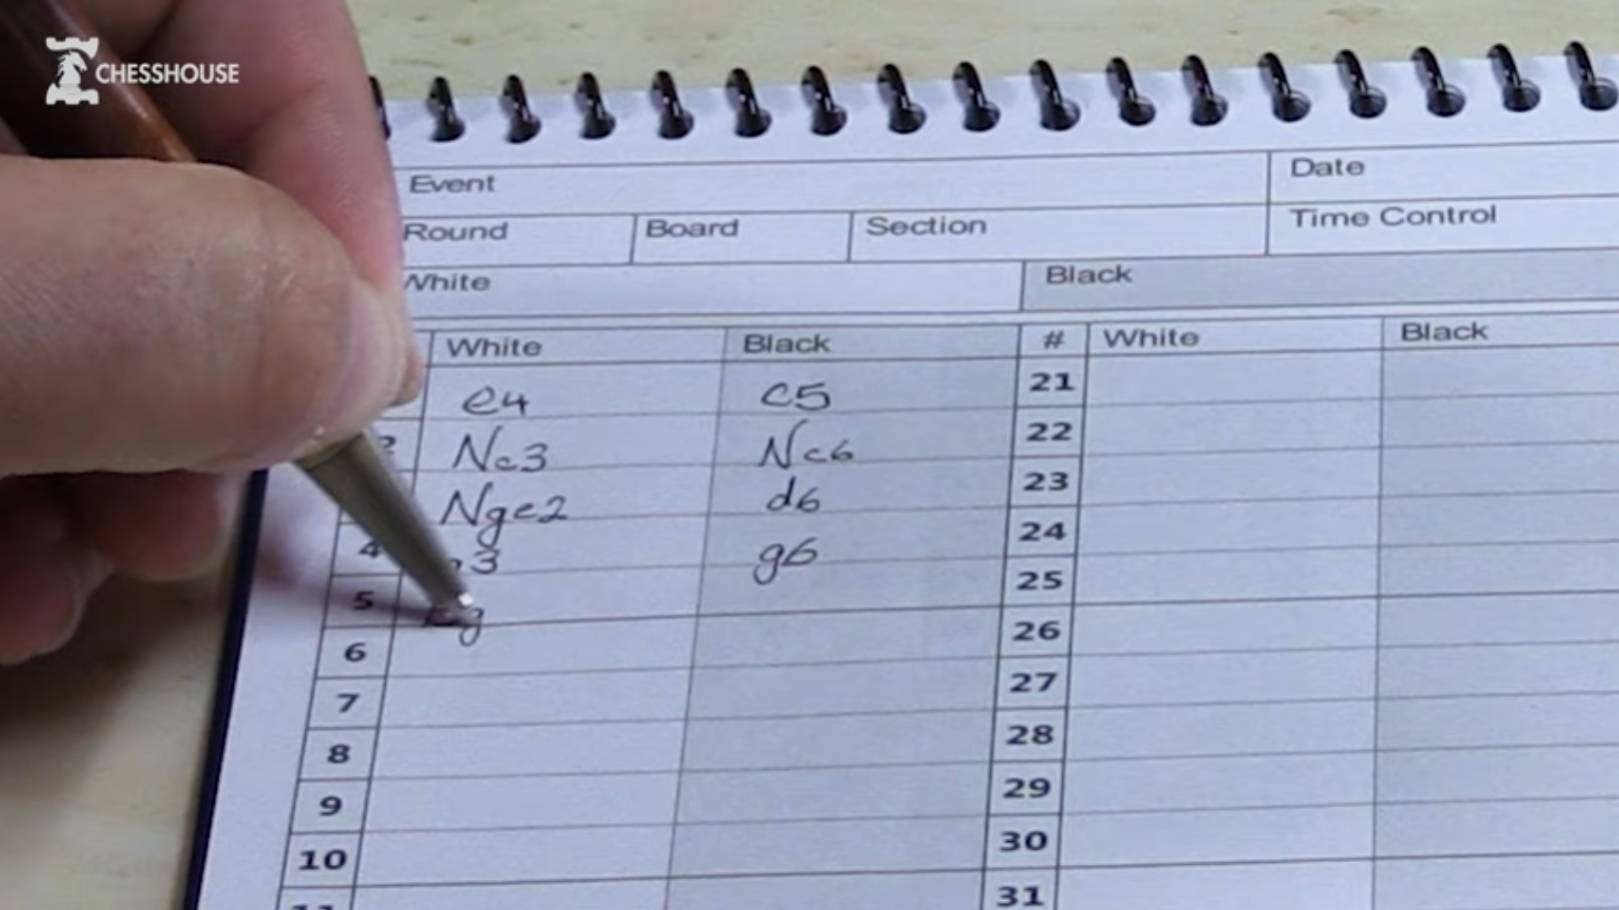 CHESSHOUSE
Event Date
Round Board Section Time Control
White Black
White Black # White Black
e4 c5 21
2 Nc3 Nc6 22
Nge2 d6 23
4 3 g6 24
5 g 25
6 26
7 27
8 28
9 29
10 30
11 31